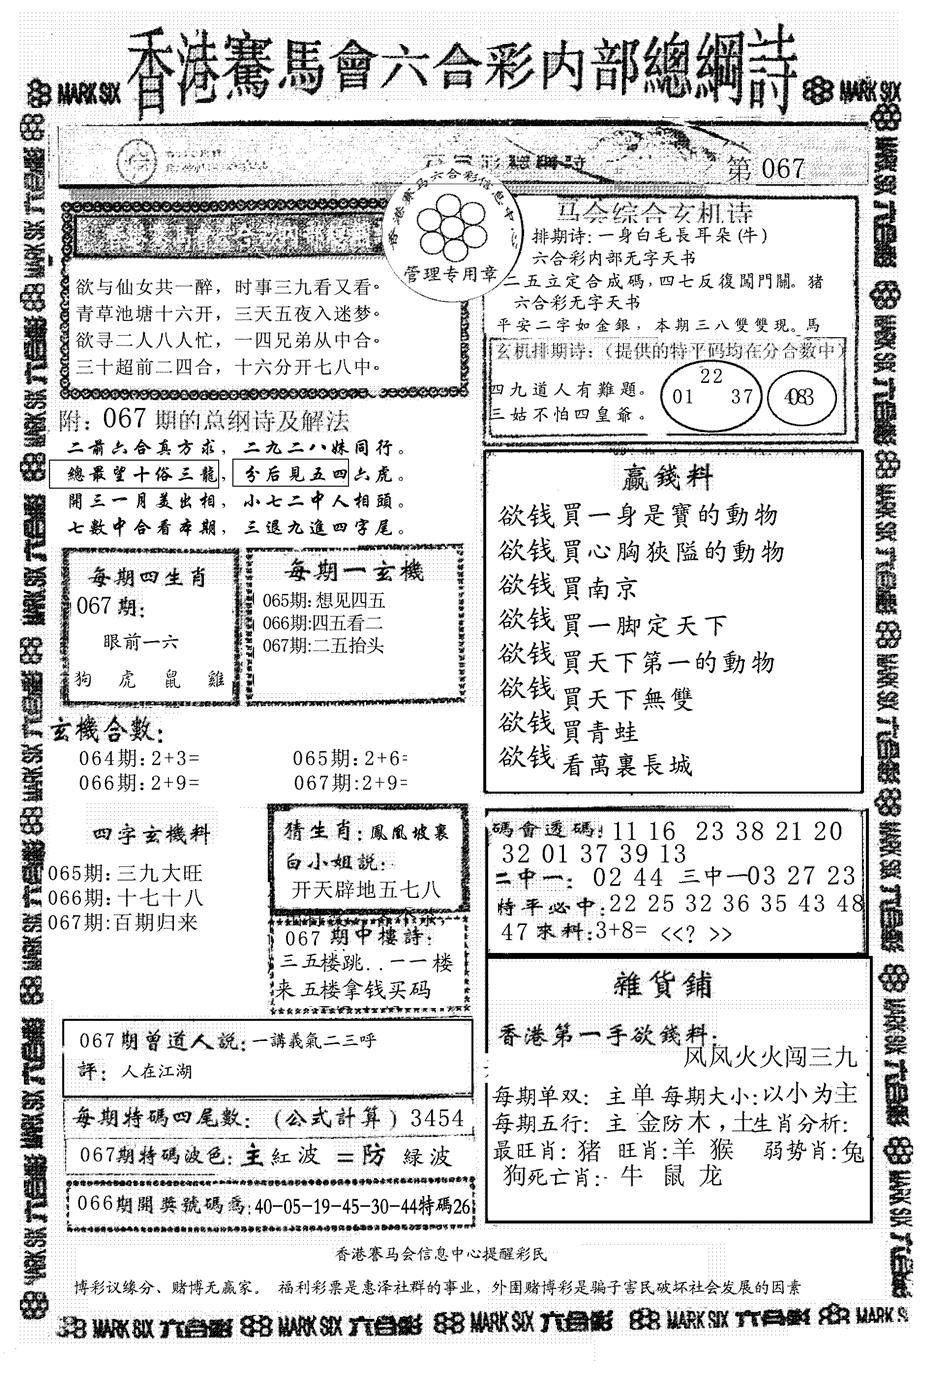 香港賽馬會六合彩内部總綱詩
MARK SIX
MARK SIX
第 067
香港赛马六合彩信息中
管理专用章
欲与仙女共一醉，时事三九看又看。
青草池塘十六开，三天五夜入迷梦。
欲寻二人八人忙，一四兄弟从中合。
三十超前二四合，十六分开七八中。
马会综合玄机诗
排期诗:一身白毛長耳朵(牛)
六合彩内部无字天书
二五立定合成碼,四七反復闖門關。猪
六合彩无字天书
平安二字如金銀，本期三八雙雙現。馬
玄机排期诗：（提供的特平码均在分合数中）
四九道人有難題。
三姑不怕四皇爺。
22
01 37
附：067期的总纲诗及解法
二前六合真方求，二九二八妹同行。
總最望十俗三龍，分后見五四六虎。
開三一月美出相，小七二中人相頭。
七數中合看本期，三退九進四字尾。
每期四生肖
067期：
眼前一六
狗 虎 鼠 雞
每期一玄機
065期:想见四五
066期:四五看二
067期:二五抬头
赢錢料
欲钱買一身是寶的動物
欲钱買心胸狹隘的動物
欲钱買南京
欲钱買一脚定天下
欲钱買天下第一的動物
欲钱買天下無雙
欲钱買青蛙
欲钱看萬裏長城
玄機合數：
064期:2+3=
065期:2+6=
066期:2+9=
067期:2+9=
四字玄機料
065期:三九大旺
066期:十七十八
067期:百期归来
猜生肖：鳳凰坡裏
白小姐説：
开天辟地五七八
067期中樓詩：
三五楼跳..一一楼
来五楼拿钱买码
碼會透碼：11 16 23 38 21 20
32 01 37 39 13
二中一：02 44 三中一03 27 23
特平必中:22 25 32 36 35 43 48
47來料:3+8= <<? >>
雜貨鋪
香港第一手欲錢料：
风风火火闯三九
每期单双：主单每期大小:以小为主
每期五行：主 金防木，土生肖分析：
最旺肖：猪 旺肖:羊 猴 弱势肖:兔
狗死亡肖：牛 鼠 龙
067期曾道人説：一講義氣二三呼
評：人在江湖
每期特碼四尾數：(公式計算) 3454
067期特碼波色：主紅波 =防 緑波
066期開獎號碼爲:40-05-19-45-30-44特碼26
香港赛马会信息中心提醒彩民
博彩议缘分、赌博无赢家。 福利彩票是惠泽社群的事业，外围赌博彩是骗子害民破坏社会发展的因素
MARK SIX 六合彩 MARK SIX 六合彩 MARK SIX 六合彩 MARK SIX 六合彩 MARK SIX